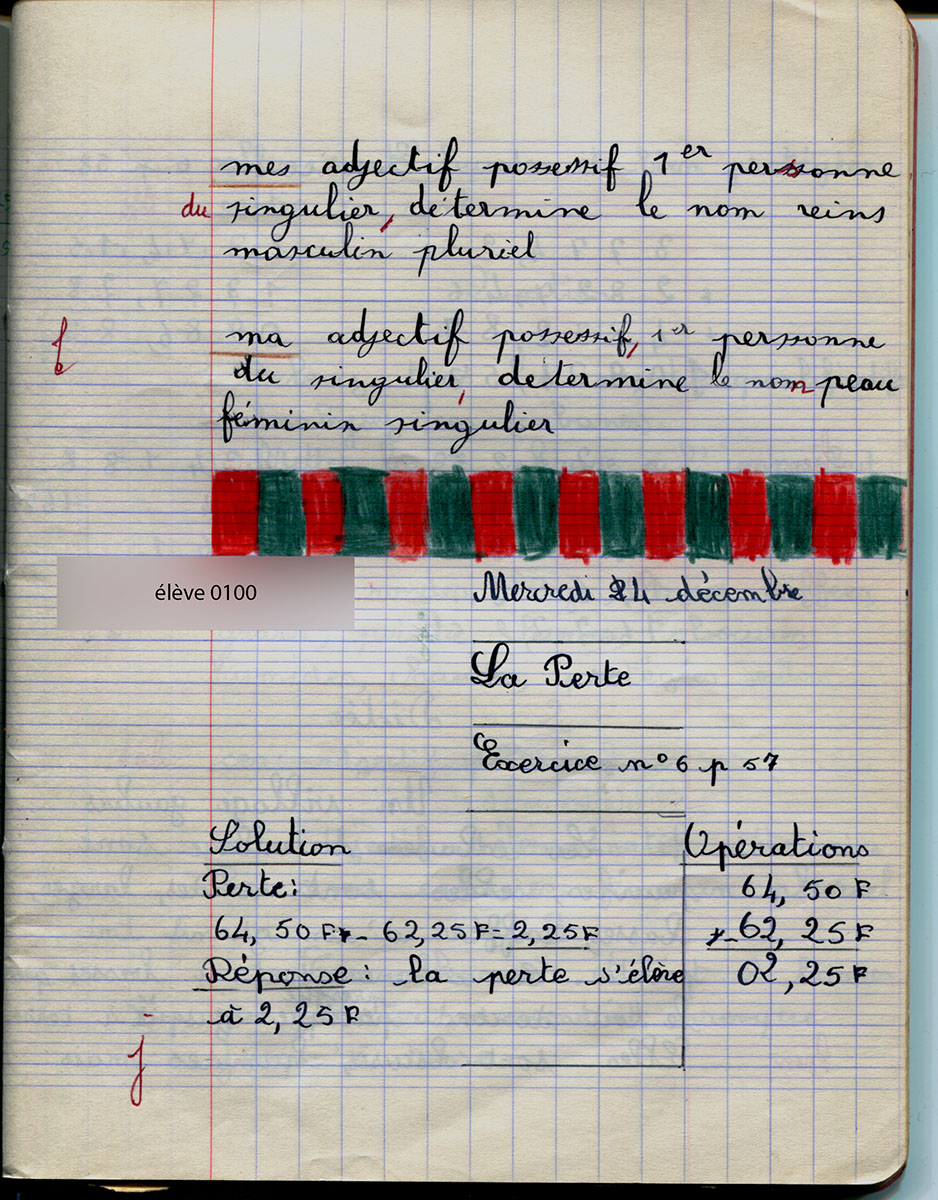 mes adjectif possessif 1er personne
du singulier, détermine le nom reins
masculin pluriel
ma adjectif possessif, 1er personne
du singulier, détermine le nom peau
féminin singulier
élève 0100
Mercredi 4 décembre
La Perte
Exercice n° 6 p 57
Solution
Opérations
Perte:
64, 50 F
64, 50 F - 62, 25 F = 2, 25 F
- 62, 25 F
Réponse: la perte s'élève
02, 25 F
à 2, 25 F